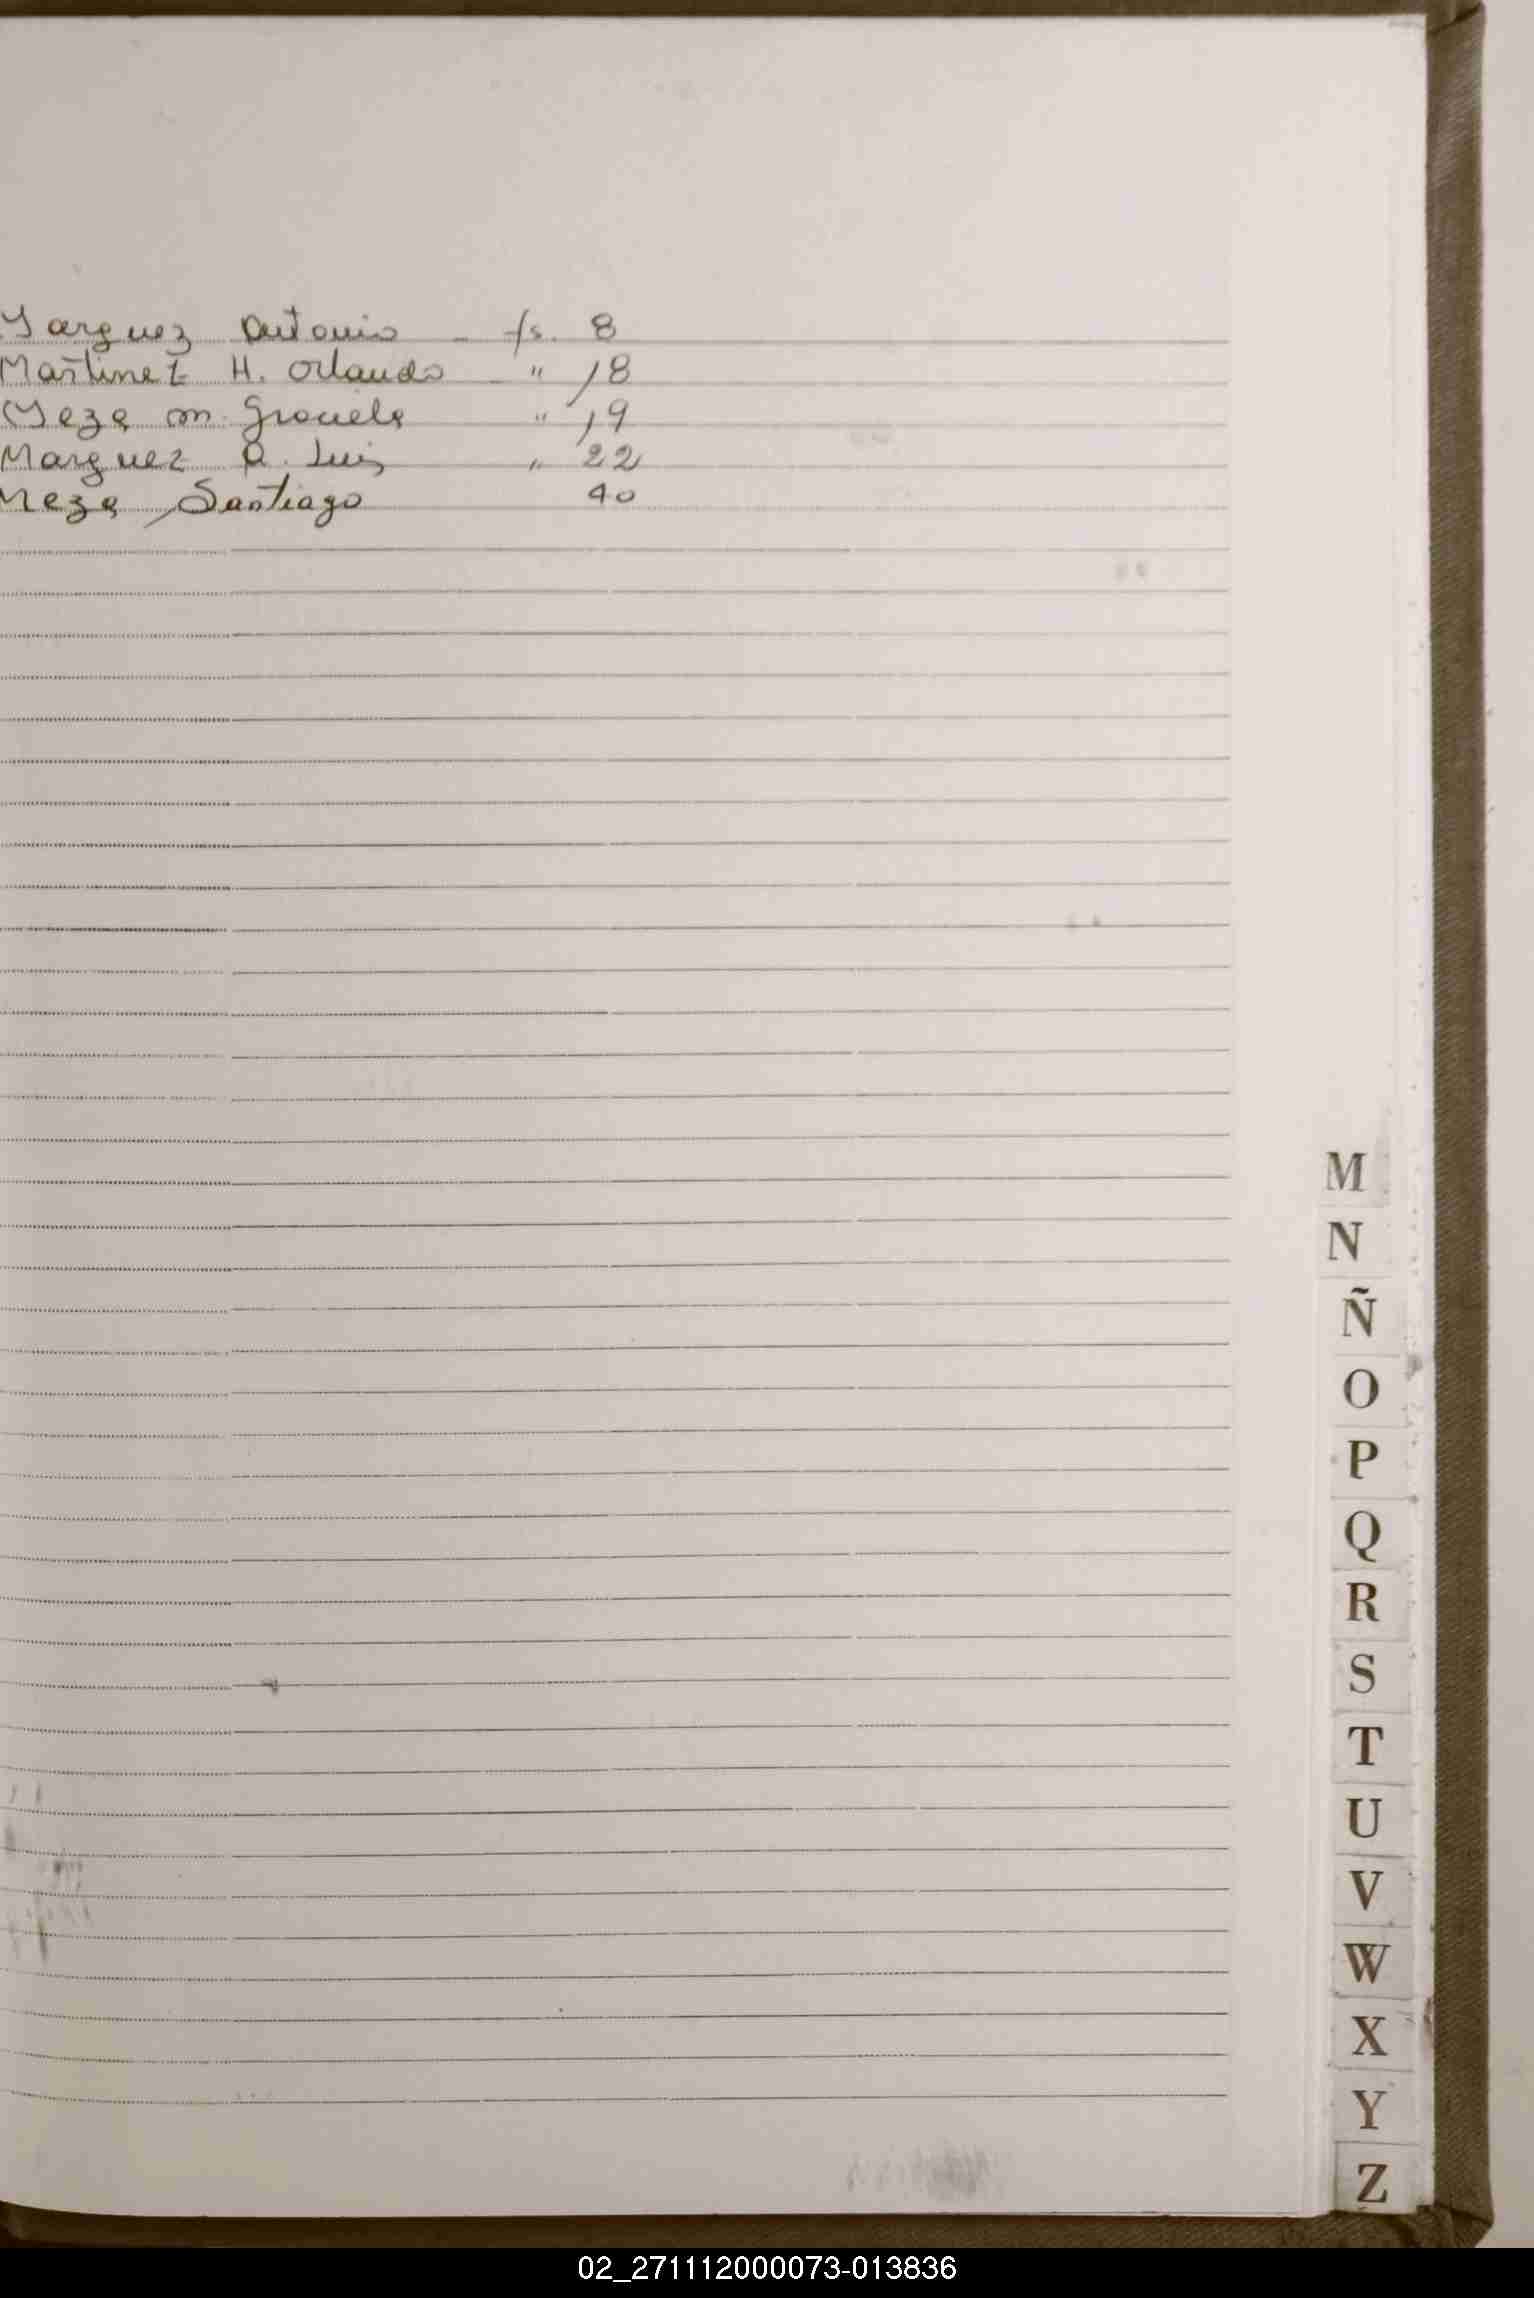 Marquez Antonio - fs. 8
Martinez H. Orlando - " 18
Meza M. Graciela " 19
Marquez R. Luis " 22
Meza, Santiago 40
M
N
Ñ
O
P
Q
R
S
T
U
V
W
X
Y
Z
02_271112000073-013836